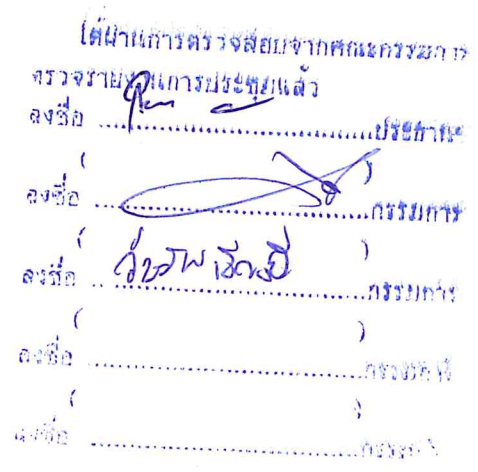 ได้ผ่านการตรวจสอบจากคณะกรรมการ
ตรวจรายงานการประชุมแล้ว
ลงชื่อ ....................................ประธานฯ
(                    )
ลงชื่อ ....................................กรรมการ
(                    )
ลงชื่อ ....................................กรรมการ
(                    )
ลงชื่อ ....................................กรรมการ
(                    )
ลงชื่อ ....................................กรรมการ